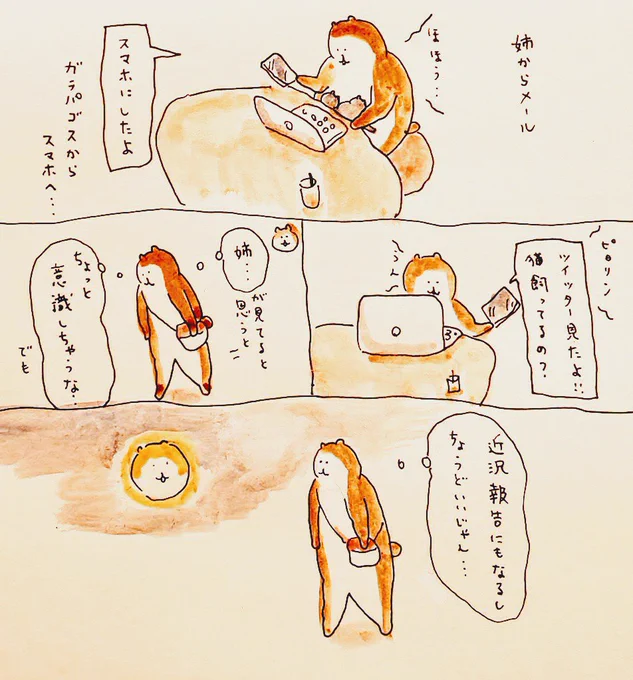 姉からメール
ほほう…
スマホにしたよ
ガラパゴスから
スマホへ…
ピロリン
ツイッター見たよ!!
猫飼ってるの?
うん
姉…
が見てると
思うと
ちょっと
意識しちゃうな…
でも
近況報告にもなるし
ちょうどいいじゃん…